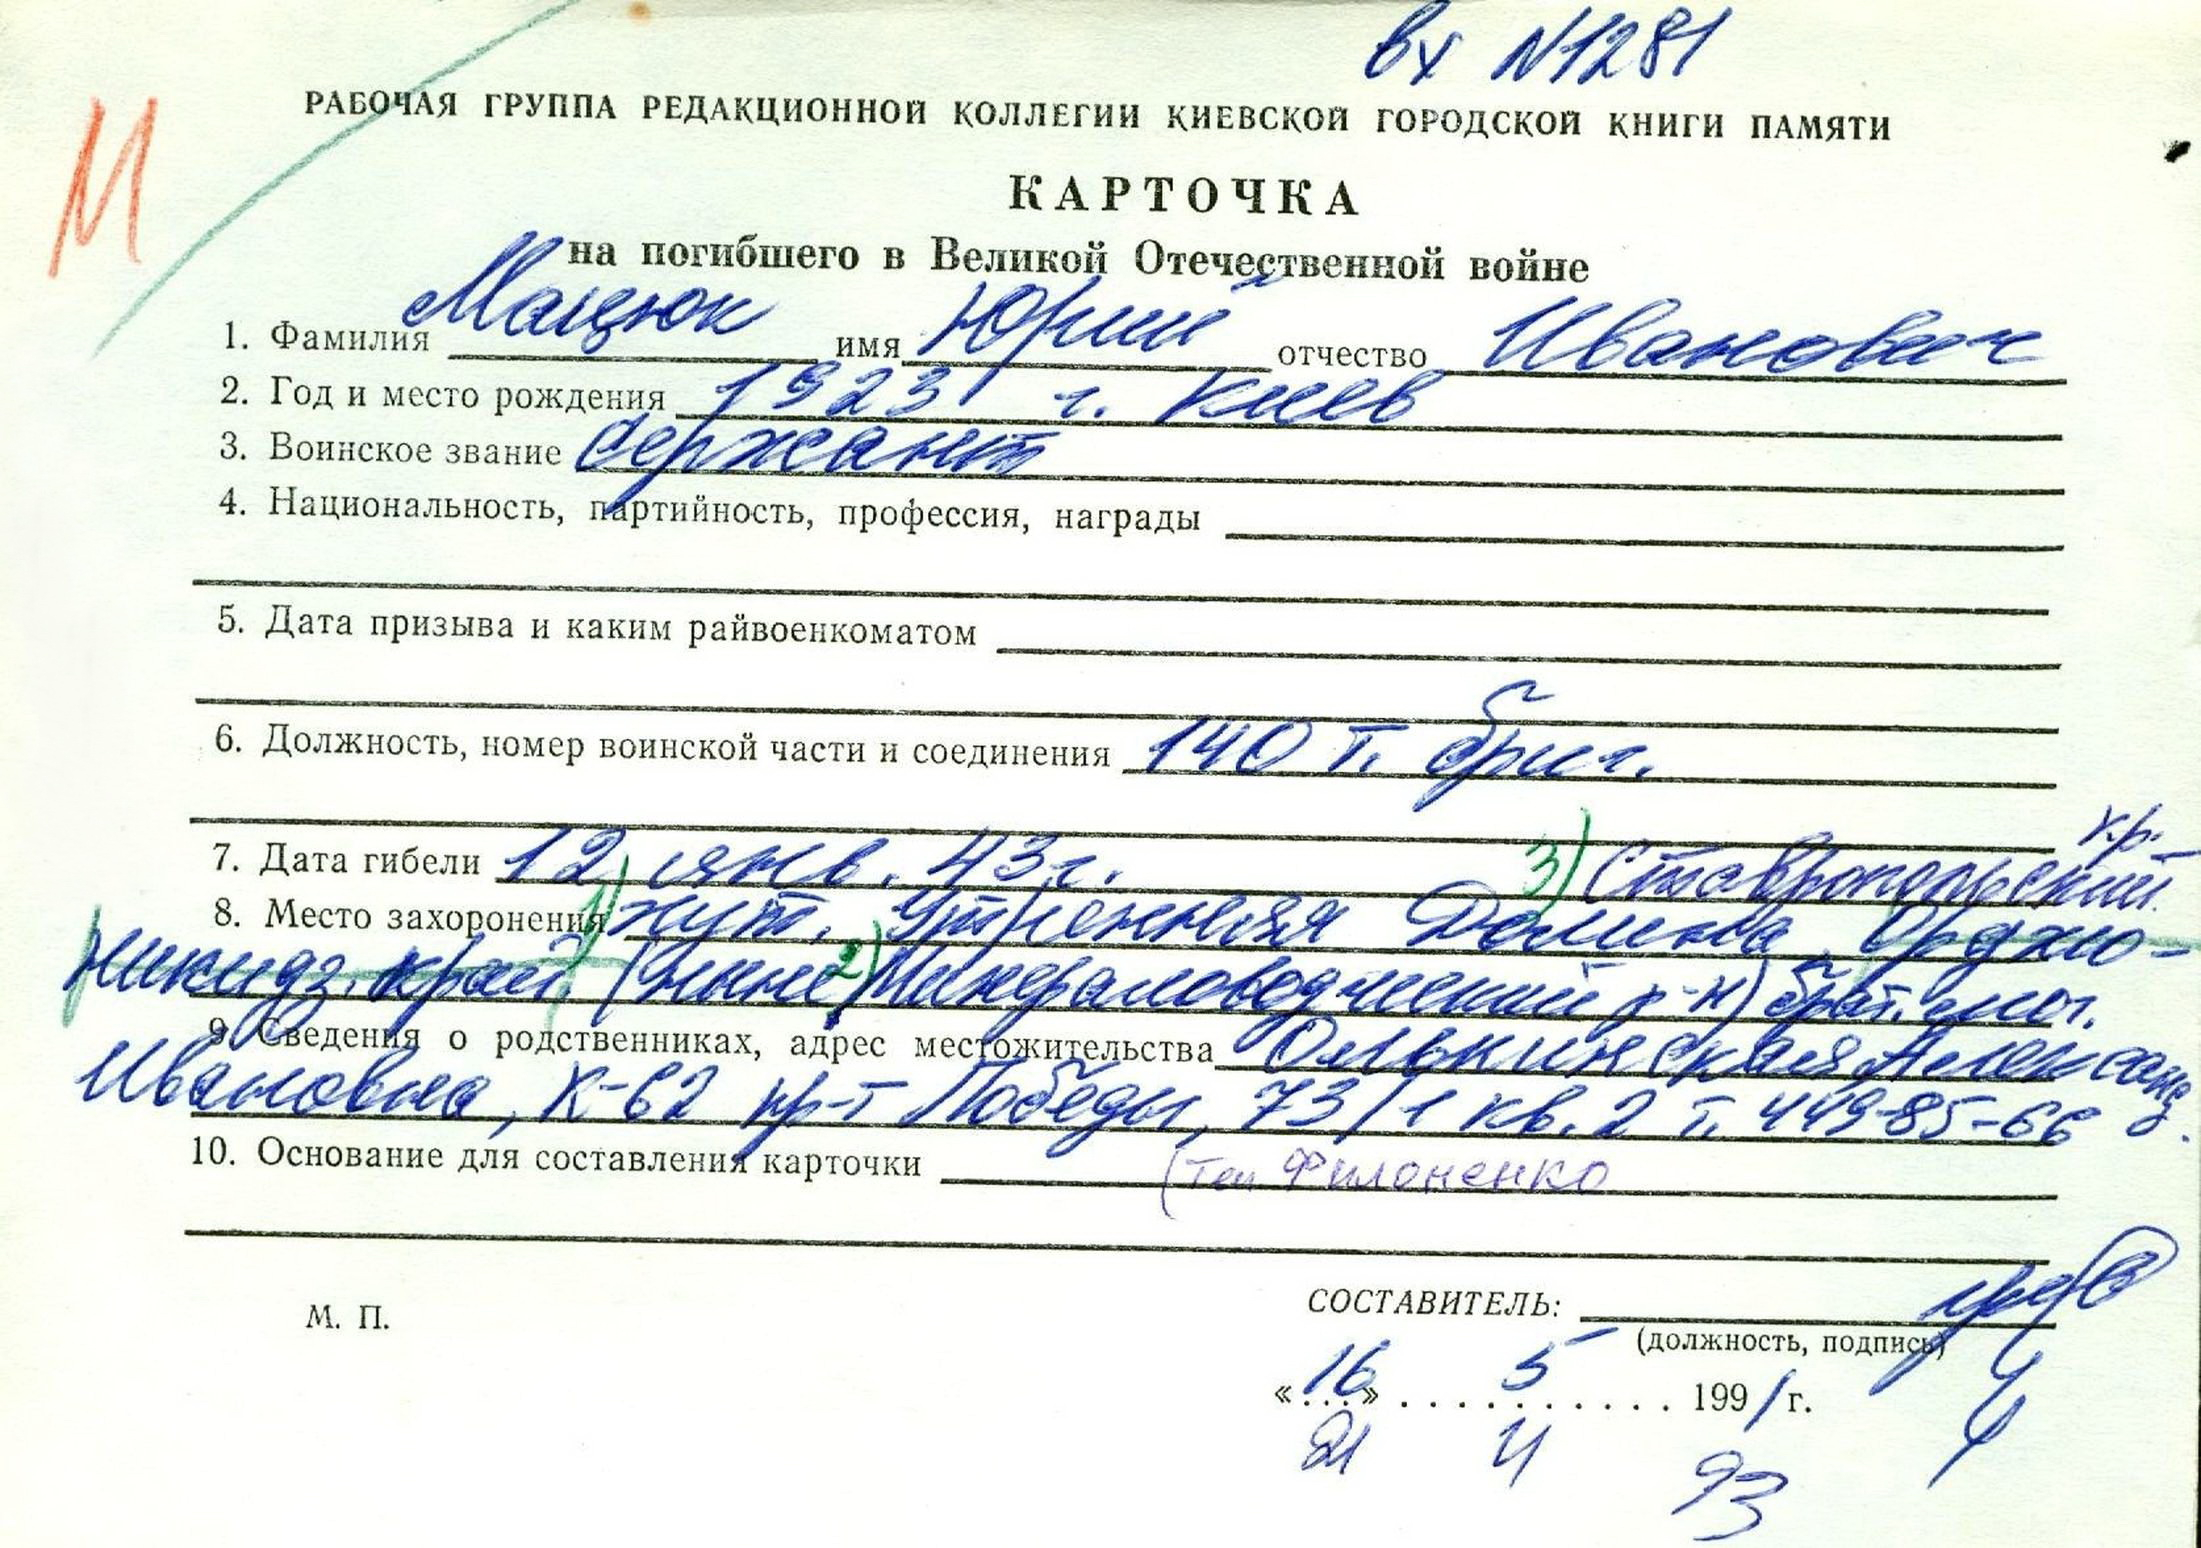 вх N1281
М
РАБОЧАЯ ГРУППА РЕДАКЦИОННОЙ КОЛЛЕГИИ КИЕВСКОЙ ГОРОДСКОЙ КНИГИ ПАМЯТИ
КАРТОЧКА
на погибшего в Великой Отечественной войне
1. Фамилия Мацюк имя Юрий отчество Иванович
2. Год и место рождения 1923 г. Киев
3. Воинское звание Сержант
4. Национальность, партийность, профессия, награды
5. Дата призыва и каким райвоенкоматом
6. Должность, номер воинской части и соединения 140 т. бриг.
7. Дата гибели 12 янв. 43г. 3) Ставропольский кр.
8. Место захоронения 1) хут. Утренняя Долина Орджо-
никидз. край (ныне 2) Минераловодческий р-н) брат. мог.
9. Сведения о родственниках, адрес местожительства Александ.
Ивановна, К-62 пр-т Победы, 73/1 кв. 2 т. 449-85-66
10. Основание для составления карточки (тел. Филоненко
М. П.
СОСТАВИТЕЛЬ:
(должность, подпись)
«16» 5 1991 г.
21 4 93